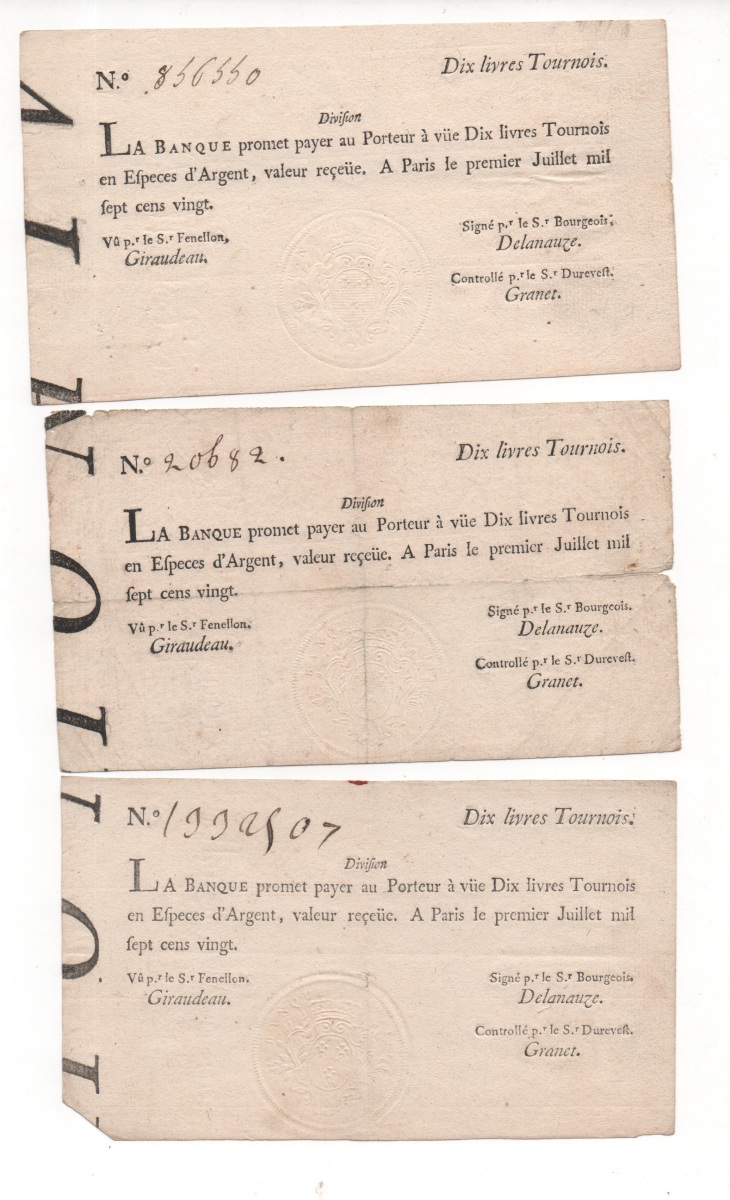 N.º 856550
Dix livres Tournois.
Diviſion
LA BANQUE promet payer au Porteur à vüe Dix livres Tournois
en Eſpeces d'Argent, valeur reçeüe. A Paris le premier Juillet mil
ſept cens vingt.
Vû p.r le S.r Fenellon,
Giraudeau.
Signé p.r le S.r Bourgeois.
Delanauze.
Controllé p.r le S.r Dureveſt.
Granet.
N.º 20682.
Dix livres Tournois.
Diviſion
LA BANQUE promet payer au Porteur à vüe Dix livres Tournois
en Eſpeces d'Argent, valeur reçeüe. A Paris le premier Juillet mil
ſept cens vingt.
Vû p.r le S.r Fenellon.
Giraudeau.
Signé p.r le S.r Bourgeois.
Delanauze.
Controllé p.r le S.r Dureveſt.
Granet.
N.º
Dix livres Tournois.
Diviſion
LA BANQUE promet payer au Porteur à vüe Dix livres Tournois
en Eſpeces d'Argent, valeur reçeüe. A Paris le premier Juillet mil
ſept cens vingt.
Vû p.r le S.r Fenellon.
Giraudeau.
Signé p.r le S.r Bourgeois.
Delanauze.
Controllé p.r le S.r Dureveſt.
Granet.